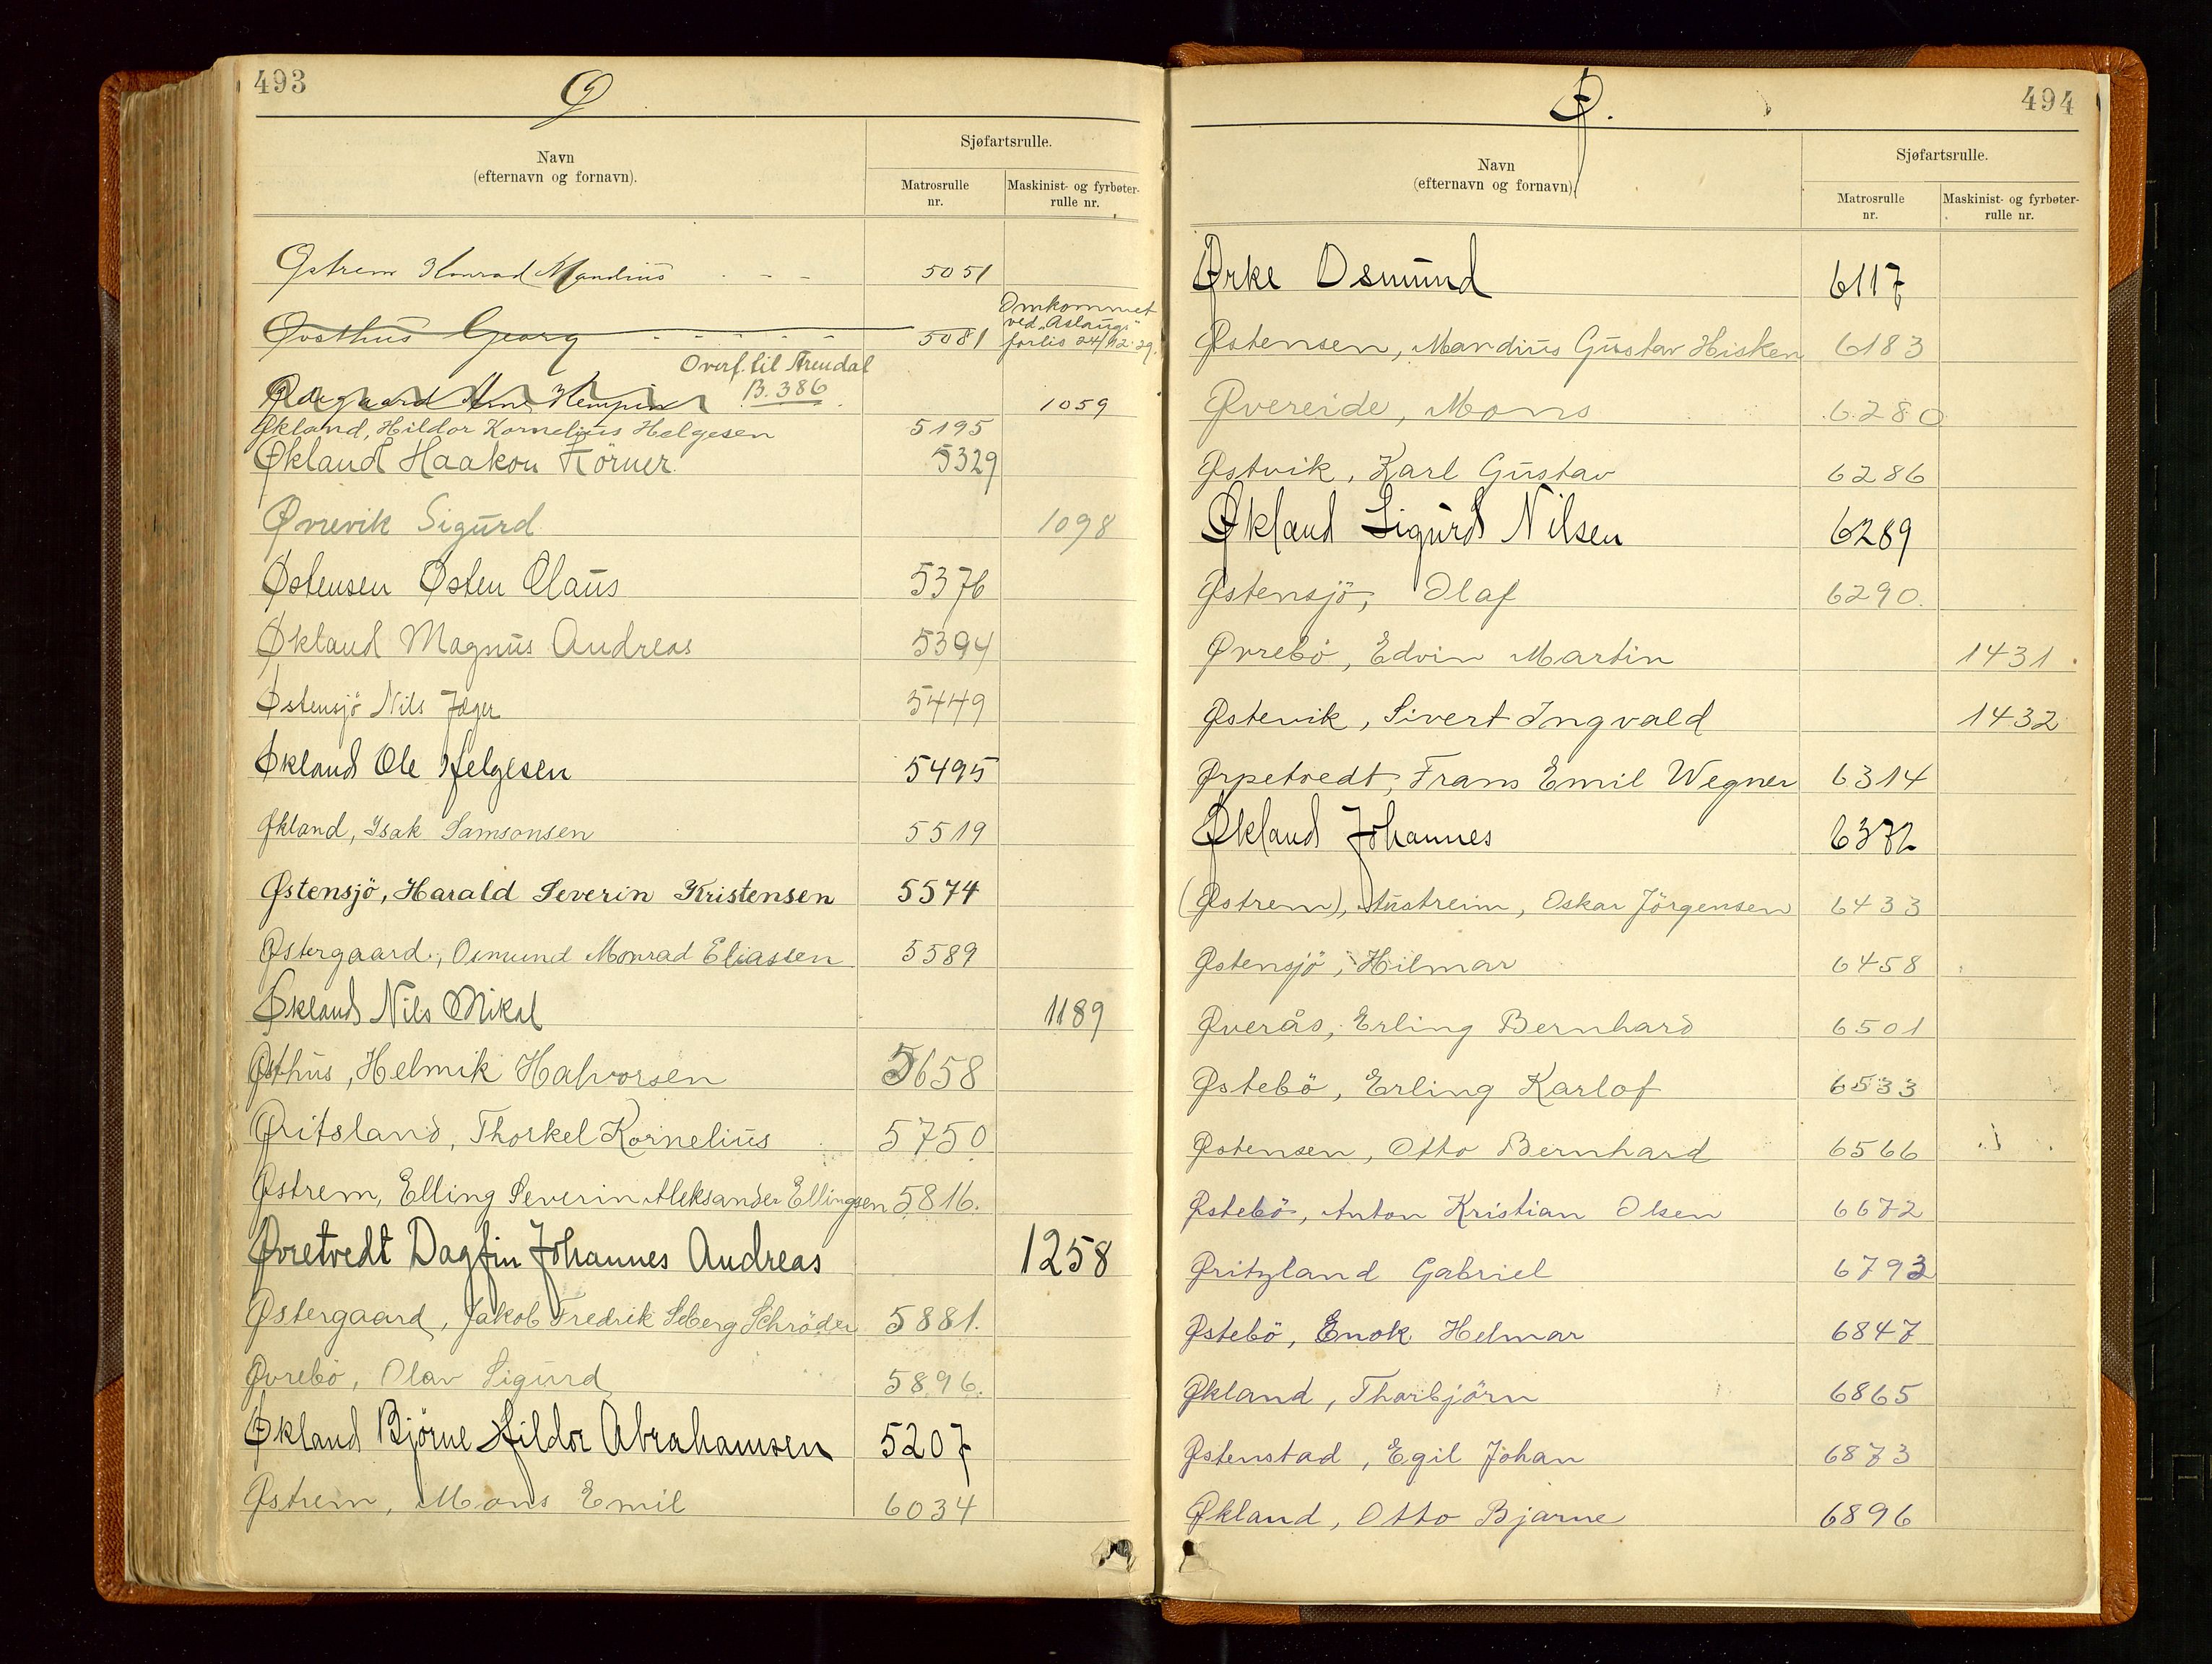 493
Ø
Navn
(efternavn og fornavn).
Sjøfartsrulle.
Matrosrulle
nr.
Maskinist- og fyrbøter-
rulle nr.
Østrem Konrad Mandius 5051
Omkommet
ved "Aslaug's"
Østhus Georg 5081 forlis 24/12.29.
Overf. til Arendal
B. 386
Ødegaard Arne 1059
Økland, Hildor Kornelius Helgesen 5195
Økland Haakon Körner 5329
Øvrevik Sigurd 1098
Østensen Østen Olaus 5376
Økland Magnus Andreas 5394
Østensjö Nils Jæger 5449
Økland Ole Helgesen 5495
Økland, Isak Samsonsen 5519
Østensjö, Harald Severin Kristensen 5574
Østergaard, Osmund Monrad Eliassen 5589
Økland Nils Mikal 1189
Østhus, Helmik Halvorsen 5658
Øritsland, Thorkel Kornelius 5750
Østrem, Elling Severin Aleksander Ellingsen 5816.
Øvretvedt Dagfin Johannes Andreas 1258
Østergaard, Jakob Fredrik Seberg Schröder 5881.
Øvrebö, Olav Sigurd 5896.
Økland Bjørne Hildor Abrahamsen 5207
Østrem, Mons Emil 6034
494
Ø.
Navn
(efternavn og fornavn).
Sjøfartsrulle.
Matrosrulle
nr.
Maskinist- og fyrbøter-
rulle nr.
Ørke Osmund 6117
Østensen, Mandius Gustav Hisken 6183
Øvereide, Mons 6280
Østvik, Karl Gustav 6286
Økland Sigurd Nilsen 6289
Østensjö, Olaf 6290.
Øvrebö, Edvin Martin 1431.
Østevik, Sivert Ingvald 1432
Ørpetvedt, Frans Emil Wegner 6314
Økland Johannes 6372
(Østrem), Austreim, Oskar Jörgensen 6433
Østensjö, Hilmar 6458
Øverås, Erling Bernhard 6501
Østebö, Erling Karlof 6533
Østensen, Otto Bernhard 6566
Østebö, Anton Kristian Olsen 6672
Øritzland Gabriel 6793
Østebö, Enok Helmar 6847
Økland, Thorbjörn 6865
Østenstad, Egil Johan 6873
Økland, Otto Bjarne 6896